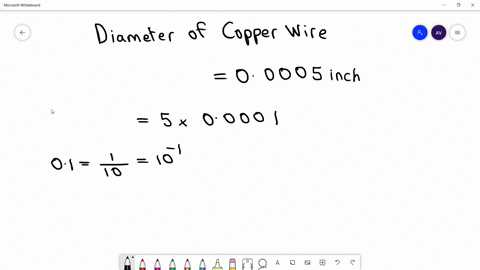 Microsoft Whiteboard
Diameter of Copper Wire
= 0.0005 inch
= 5 x 0.0001
0.1 = 1/10 = 10⁻¹
AV